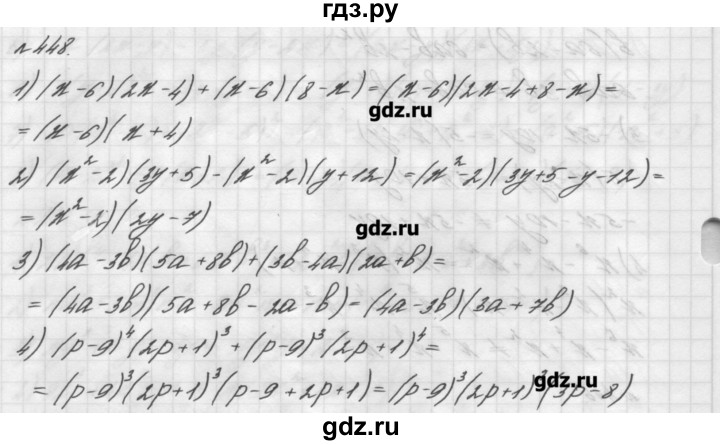 гдз.ру
№448.
1) (x-6)(2x-4)+(x-6)(8-x)=(x-6)(2x-4+8-x)=
гдз.ru
=(x-6)(x+4)
2) (x²-2)(3y+5)-(x²-2)(y+12)=(x²-2)(3y+5-y-12)=
=(x²-2)(2y-7)
гдз.ru
3) (4a-3b)(5a+8b)+(3b-4a)(2a+b)=
=(4a-3b)(5a+8b-2a-b)=(4a-3b)(3a+7b)
4) (p-9)⁴(2p+1)³+(p-9)³(2p+1)⁴=
=(p-9)³(2p+1)³(p-9+2p+1)=(p-9)³(2p+1)³(3p-8)
гдз.ru
гдз.ru